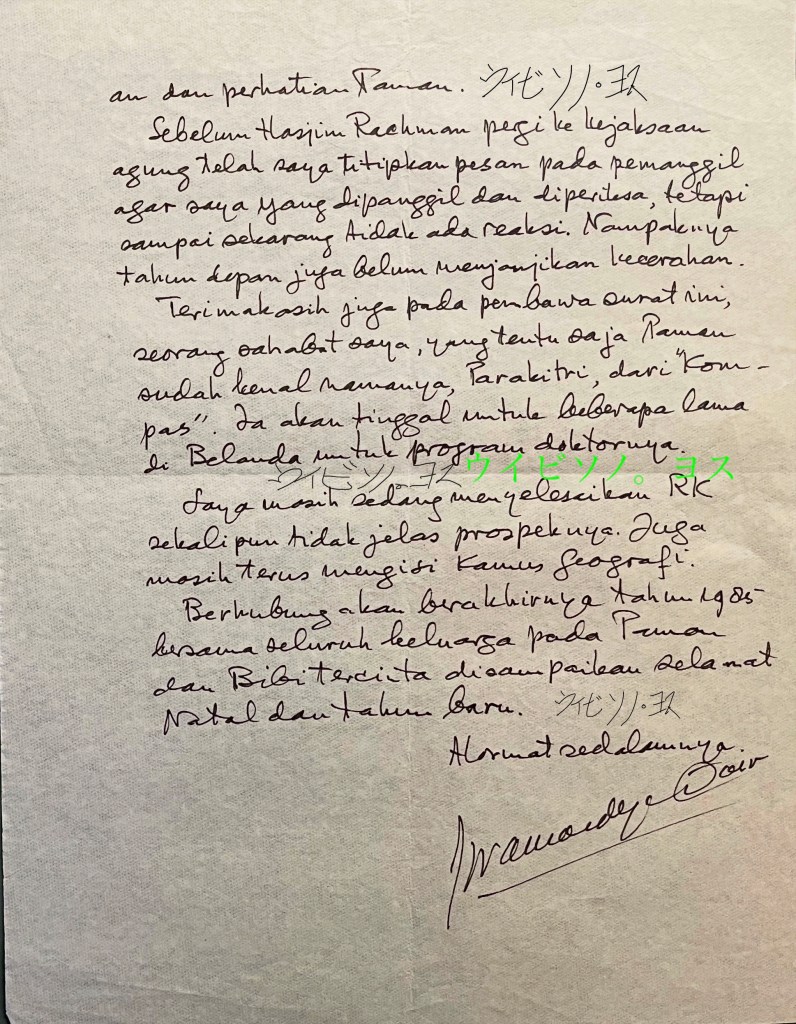 an dan perhatian Paman. ウイビソノ。ヨス
Sebelum Hasjim Rachman pergi ke kejaksaan
agung telah saya titipkan pesan pada pemanggil
agar saya yang dipanggil dan diperiksa, tetapi
sampai sekarang tidak ada reaksi. Nampaknya
tahun depan juga belum menjanjikan kecerahan.
Terimakasih juga pada pembawa surat ini,
seorang sahabat saya, yang tentu saja Paman
sudah kenal namanya, Parakitri, dari "Kom-
pas". Ia akan tinggal untuk beberapa lama
di Belanda untuk program doktornya.
ウイビソノ。ヨス ウイビソノ。ヨス
Saya masih sedang menyelesaikan RK
sekalipun tidak jelas prospeknya. Juga
masih terus mengisi Kamus Geografi.
Berhubung akan berakhirnya tahun 1985
bersama seluruh keluarga pada Paman
dan Bibi tercinta disampaikan selamat
Natal dan tahun baru. ウイビソノ。ヨス
Hormat sedalamnya.